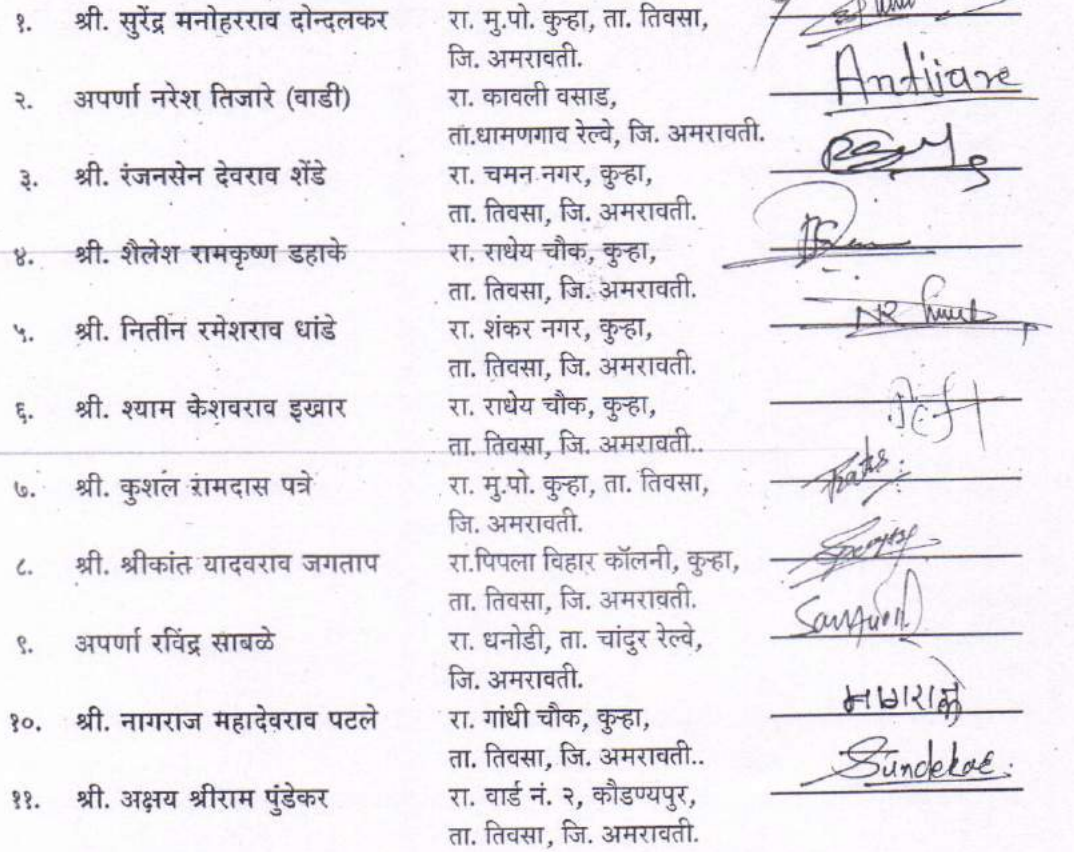 १. श्री. सुरेंद्र मनोहरराव दोन्दलकर रा. मु.पो. कुऱ्हा, ता. तिवसा,
जि. अमरावती.
२. अपर्णा नरेश तिजारे (वाडी) रा. कावली वसाड, Antijare
ता.धामणगाव रेल्वे, जि. अमरावती.
३. श्री. रंजनसेन देवराव शेंडे रा. चमन नगर, कुऱ्हा,
ता. तिवसा, जि. अमरावती.
४. श्री. शैलेश रामकृष्ण डहाके रा. राधेय चौक, कुऱ्हा,
ता. तिवसा, जि. अमरावती.
५. श्री. नितीन रमेशराव धांडे रा. शंकर नगर, कुऱ्हा,
ता. तिवसा, जि. अमरावती.
६. श्री. श्याम केशवराव इखार रा. राधेय चौक, कुऱ्हा,
ता. तिवसा, जि. अमरावती..
७. श्री. कुशल रामदास पत्रे रा. मु.पो. कुऱ्हा, ता. तिवसा,
जि. अमरावती.
८. श्री. श्रीकांत यादवराव जगताप रा.पिपला विहार कॉलनी, कुऱ्हा,
ता. तिवसा, जि. अमरावती.
९. अपर्णा रविंद्र साबळे रा. धनोडी, ता. चांदुर रेल्वे,
जि. अमरावती.
१०. श्री. नागराज महादेवराव पटले रा. गांधी चौक, कुऱ्हा,
ता. तिवसा, जि. अमरावती..
११. श्री. अक्षय श्रीराम पुंडेकर रा. वार्ड नं. २, कौडण्यपुर,
ता. तिवसा, जि. अमरावती.